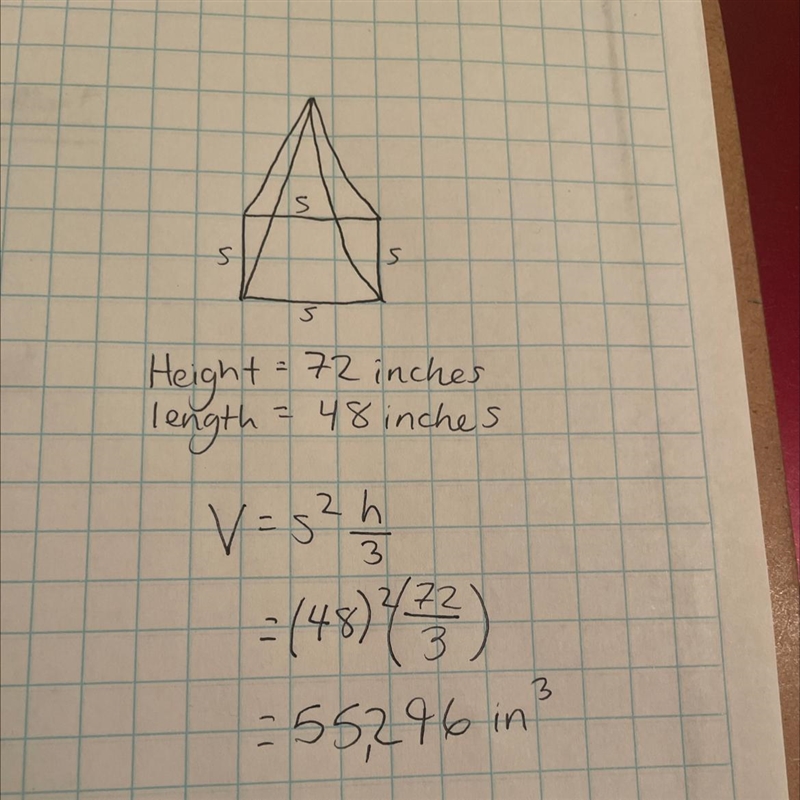 s
s s
s
Height = 72 inches
length = 48 inches
V = s² h/3
= (48)² (72/3)
= 55,296 in³